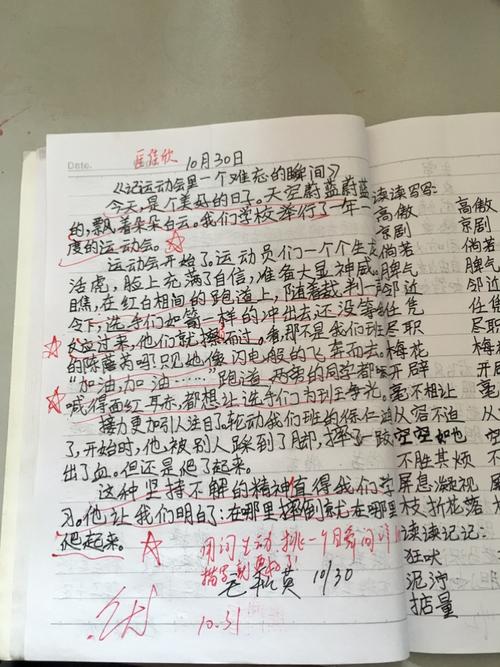 Date.
10月30日
《记运动会里一个难忘的瞬间》
今天,是个美好的日子。天空蔚蓝蔚蓝
的,飘着朵朵白云。我们学校举行了一年一
度的运动会。
运动会开始了,运动员们一个个生龙
活虎,脸上充满了自信,准备大显神威。
瞧,在红白相间的跑道上,随着裁判一声
令下,选手们如箭一样的冲出去还没等
反应过来,他们就擦而过。看,那不是我们班
的陈 芮吗?只见她像闪电般的飞奔而去。
“加油,加油……”跑道两旁的同学都
喊得面红耳赤,都想让选手们为班上争光。
接力更加引人注目了,轮动我们班的徐仁
了,开始时,他被别人踩到了脚,摔了一跤
出了血。但还是爬了起来。
这种坚持不解的精神值得我们学
习。他让我们明白:在哪里摔倒就在哪里
爬起来。
用词生动,挑一个瞬间详
描写就更好了!
10/30
10.31
读读写写:
高傲 高傲
京剧 京剧
倘若 倘若
脾气 脾气
邻近 邻近
任凭 任凭
尽职 尽职
梅花 梅花
开辟 开辟
毫不相让
从容不迫
空空如也
不胜其烦
屏息凝视
枝折花落
读读记记:
狂吠
掂量